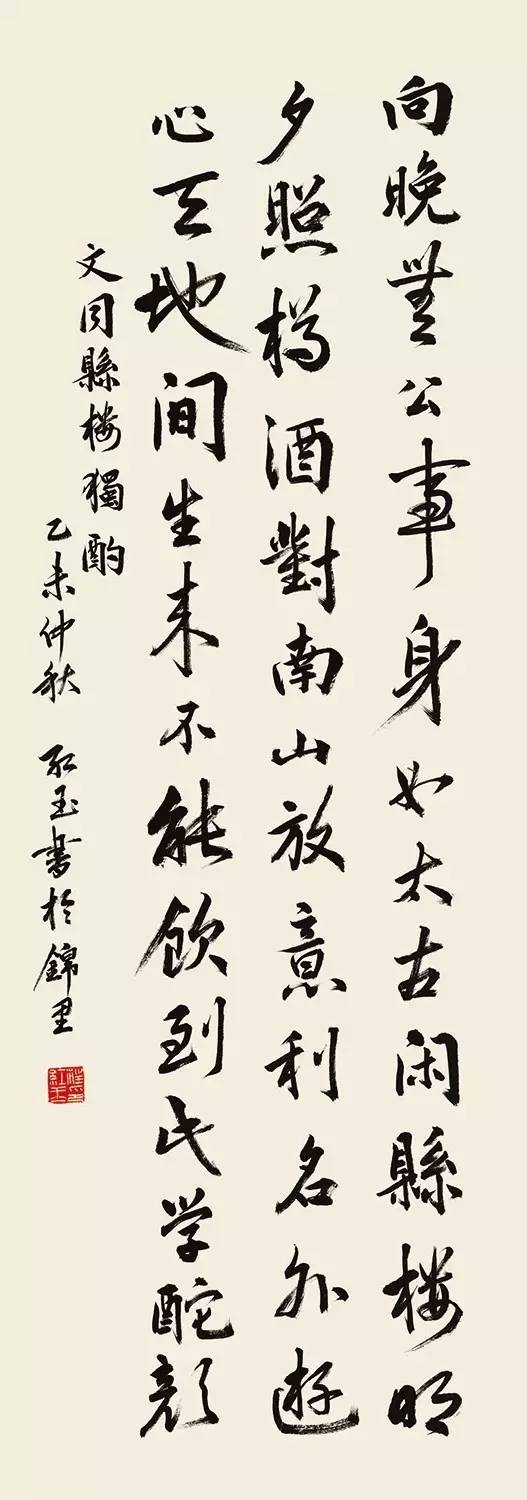 向晚無公事身如太古闲縣樓明
夕照樽酒對南山放意利名外遊
心天地間生来不能飲到此学酡颜
文同縣樓獨酌
乙未仲秋 红玉書於錦里